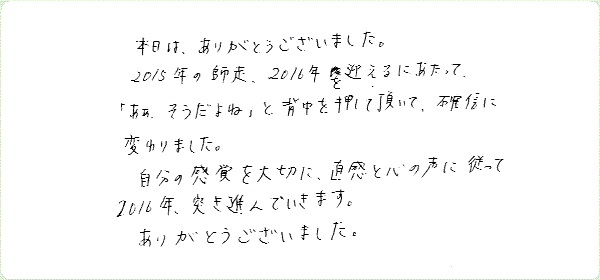 本日は、ありがとうございました。
2015年の師走、2016年を迎えるにあたって、
「あぁ、そうだよね」と背中を押して頂いて、確信に
変わりました。
自分の感覚を大切に、直感と心の声に従って
2016年、突き進んでいきます。
ありがとうございました。